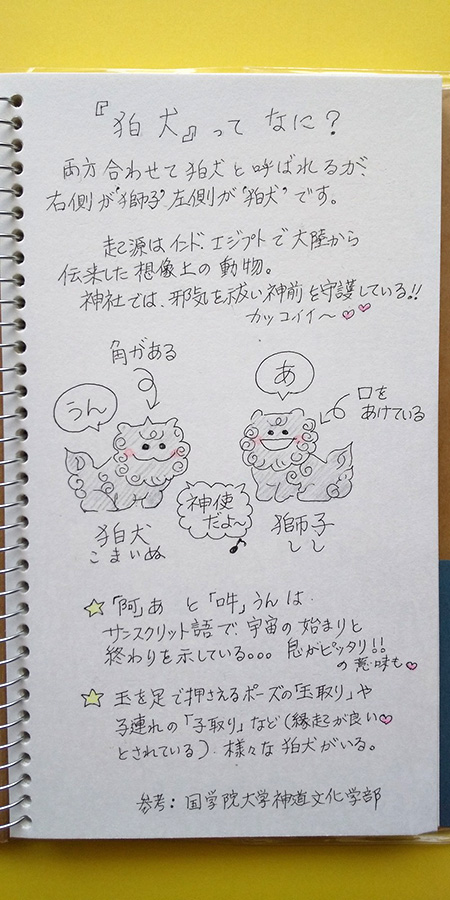 『狛犬』って なに？
両方合わせて狛犬と呼ばれるが、
右側が"獅子"左側が"狛犬"です。
起源はインド、エジプトで大陸から
伝来した想像上の動物。
神社では、邪気を祓い神前を守護している!!
カッコイイ〜
角がある
うん
あ
口を
あけている
狛犬
こまいぬ
神使
だよ〜
獅子
しし
「阿」あ と「吽」うんは
サンスクリット語で、宇宙の始まりと
終わりを示している。。。息がピッタリ!!
の意味も
玉を足で押さえるポーズの「玉取り」や
子連れの「子取り」など(縁起が良い
とされている)、様々な狛犬がいる。
参考：国学院大学神道文化学部